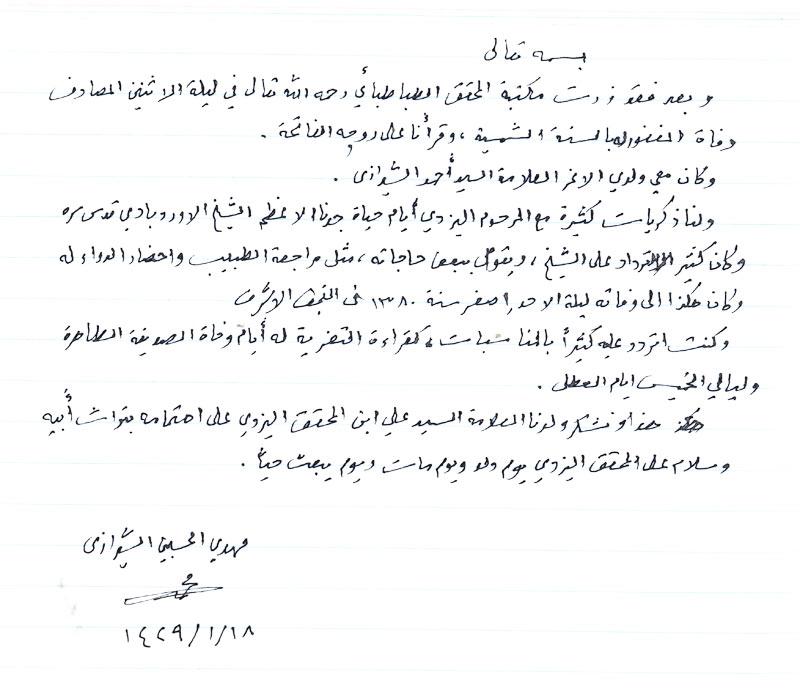 بسمه تعالى
وبعد فقد زرت مكتبة المحقق الطباطبائي رحمه الله تعالى في ليلة الاثنين المصادف
وفاة المغفور له بالسنة الشمسية ، وقرأنا على روحه الفاتحة .
وكان معي ولدي الاغر العلامة السيد أحمد الشيرازي .
ولنا ذكريات كثيرة مع المرحوم اليزدي أيام حياة جدنا الاعظم الشيخ الاوردوبادي قدس سره
وكان كثير التردد على الشيخ ، ويقوم ببعض حاجاته ، مثل مراجعة الطبيب واحضار الدواء له
وكان هكذا الى وفاته ليلة الاحد ١ صفر سنة ١٣٨٠ في النجف الاشرف
وكنت اتردد عليه كثيراً بالمناسبات كقراءة التعزية له أيام وفاة الصديقة الطاهرة
وليالي الخميس ايام العطل .
هذا ونشكر ولدنا العلامة السيد علي ابن المحقق اليزدي على اهتمامه بتراث أبيه
وسلام على المحقق اليزدي يوم ولد ويوم مات ويوم يبعث حياً .
مهدي الحسيني الشيرازي
١٤٢٩/١/١٨